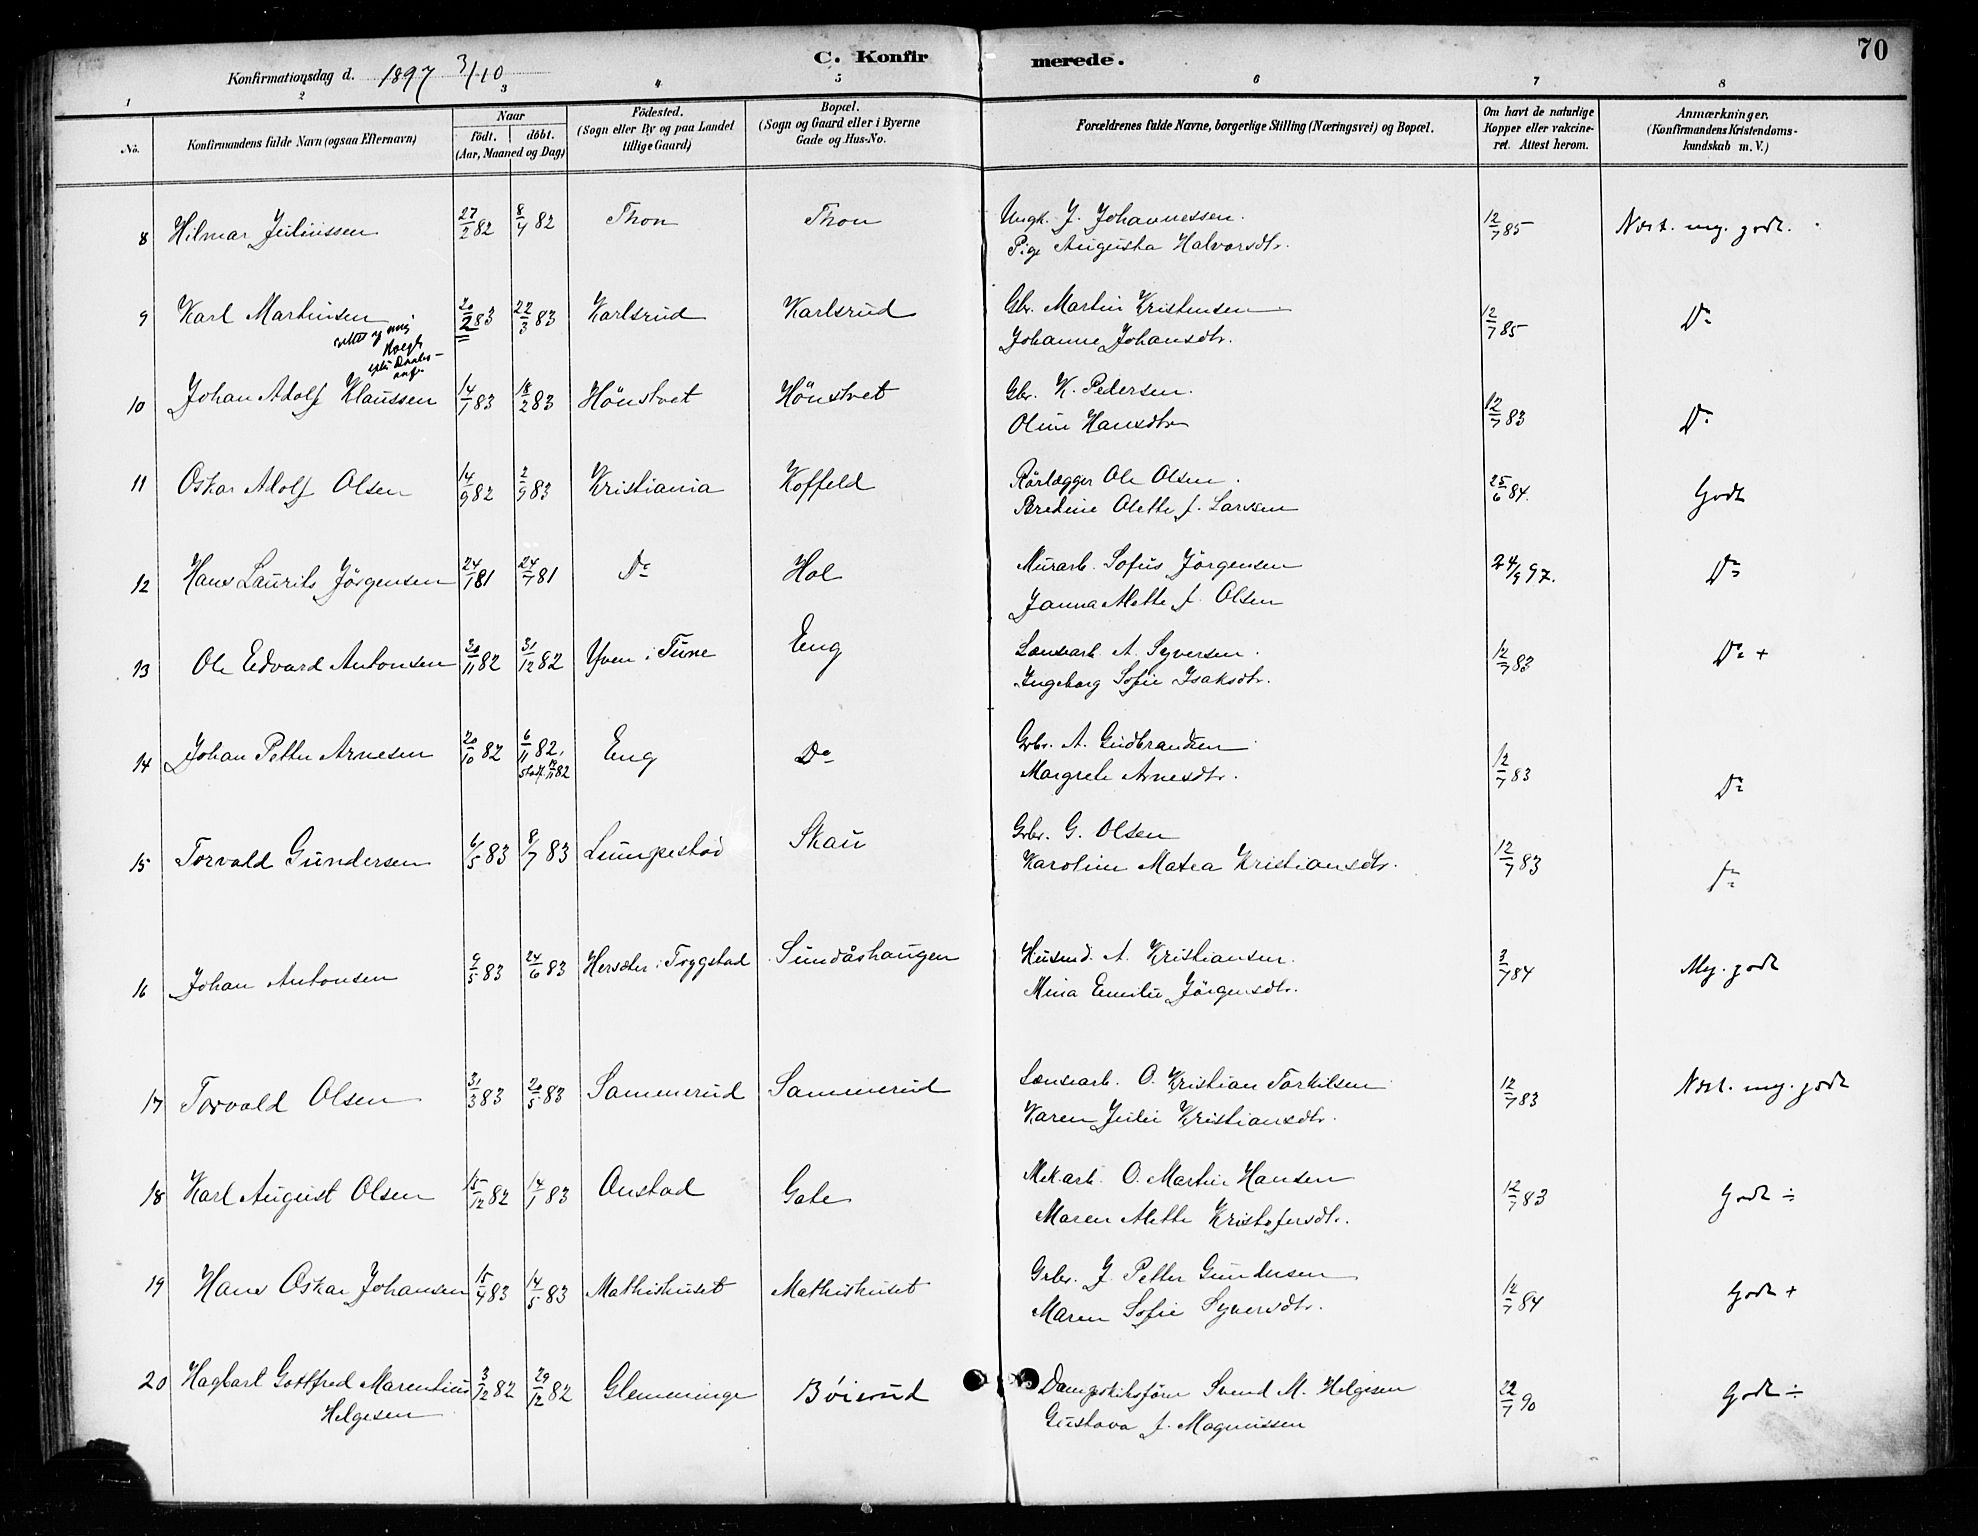 70
Konfirmationsdag d. 1897 3/10
C. Konfirmerede.
1 2 3 4 5 6 7 8
No. Konfirmandens fulde Navn (ogsaa Efternavn) Naar födt. döbt. (Aar, Maaned og Dag) Födested. (Sogn eller By og paa Landet tillige Gaard) Bopæl. (Sogn og Gaard eller i Byerne Gade og Hus-No. Forældrenes fulde Navne, borgerlige Stilling (Næringsvei) og Bopæl. Om havt de naturlige Kopper eller vakcineret. Attest herom. Anmærkninger. (Konfirmandens Kristendomskundskab m. V.)
8 Hilmar Juliussen 27/2 82 8/4 82 Thon Thon Ungk. J. Johannessen. 12/7 85 Næst. mg. godt.
Pige Augusta Halvorsdtr.
9 Karl Martinsen 20/2 83 22/3 83 Karlsrud Karlsrud Gbr. Martin Kristensen 12/7 85 Do
Johanne Johansdtr.
10 Johan Adolf Klaussen 14/1 83 18/2 83 Hönstvet Hönstvet Gbr. K. Pedersen. 12/7 83 Do
Oline Hansdtr
11 Oskar Adolf Olsen 14/9 82 2/9 83 Kristiania Koffeld Rörlægger Ole Olsen. 25/6 84. Godt
Bredine Olette f. Larssen
12 Hans Laurits Jörgensen 24/1 81 24/7 81 Do Hol Murarb. Sofus Jörgensen 24/9 97. Do
Janna Mette f. Olsen
13 Ole Edvard Antonsen 30/11 82 31/12 82 Yven i Tune Eng Lænsearb. A. Syversen. 12/7 83 Do +
Ingeborg Sofie Isaksdtr.
14 Johan Petter Arnesen 20/10 82 6/11 82. Eng Do Grbr. A. Gudbrandsen 12/7 83 Do
Margrete Arnesdtr.
15 Torvald Gundersen 6/5 83 8/7 83 Lumpestad Skau Grbr. G. Olsen 12/7 83 Do
Karoline Matea Kristiansdtr.
16 Johan Antonsen 9/5 83 24/6 83 Hersæter i Trygstad Sundåshaugen Husmd. A. Kristiansen. 3/7 84 Mg. godt
Mina Emilie Jörgensdtr.
17 Torvald Olsen 31/3 83 20/5 83 Sammerud Sammerud Lænsearb. O. Kristian Torkilsen 12/7 83 Næst. mg. godt
Karen Julie Kristiansdtr.
18 Karl August Olsen 15/12 82 14/1 83 Onstad Gate Mek arb. O. Martin Hansen 12/7 83 Godt ÷
Maren Mette Kristofersdtr.
19 Hans Oskar Johansen 15/4 83 14/5 83 Mathishuset Mathishuset Grbr. J. Petter Gundersen 12/7 84 Godt +
Maren Sofie Syversdtr.
20 Hagbart Gottfred Marentius 3/12 82 29/12 82 Glemminge Böierud Dampskibsförer Svend M. Helgesen 22/7 90 Godt ÷
Helgesen Gustava f. Magnussen